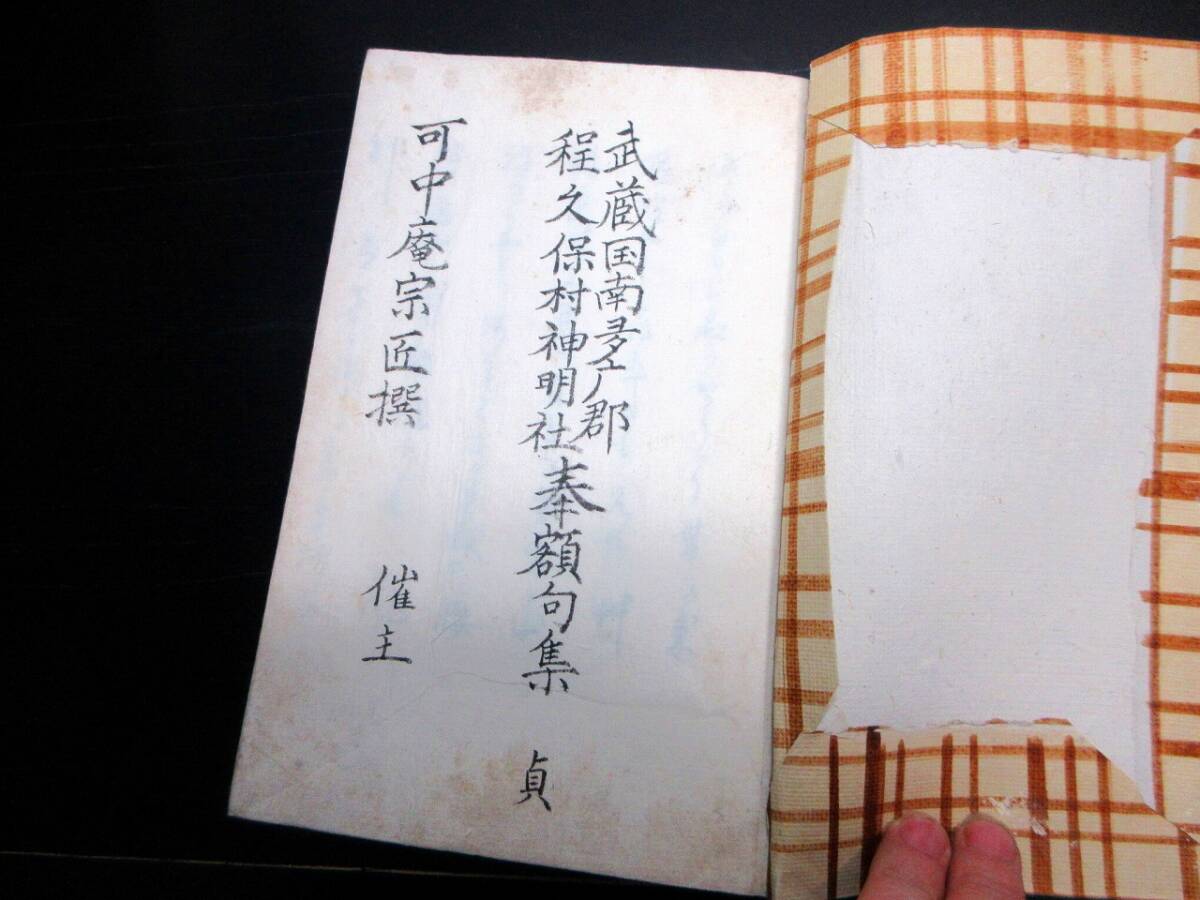 武蔵国南多广郡
程久保村神明社奉額句集 貞
可中庵宗匠撰 催主